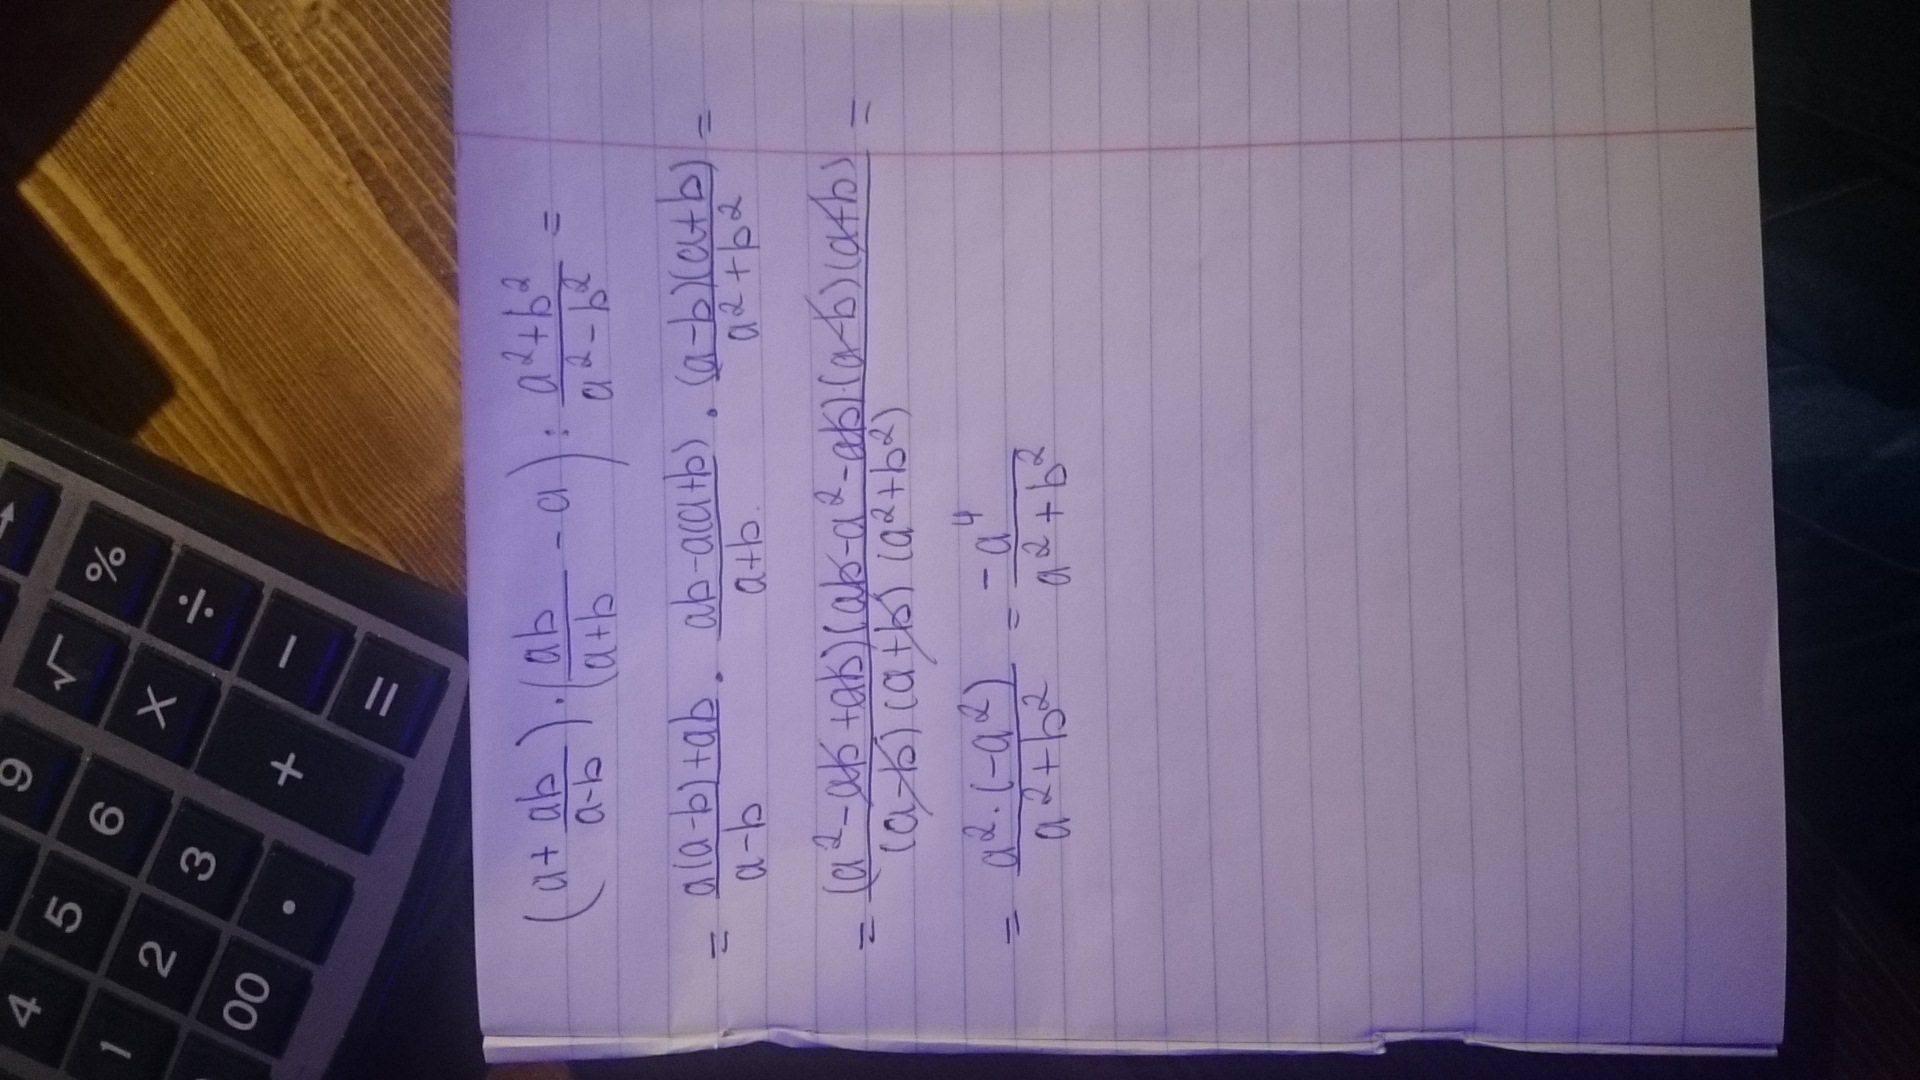 (a + ab/(a-b)) · (ab/(a+b) - a) : (a²+b²)/(a²-b²) =
= (a(a-b)+ab)/(a-b) · (ab-a(a+b))/(a+b) · ((a-b)(a+b))/(a²+b²) =
= ((a²-ab+ab)(ab-a²-ab)·(a-b)(a+b))/((a-b)(a+b)(a²+b²)) =
= (a²·(-a²))/(a²+b²) = (-a⁴)/(a²+b²)
√ %
9 × ÷
6 −
5 + =
4 3
2 .
1 00